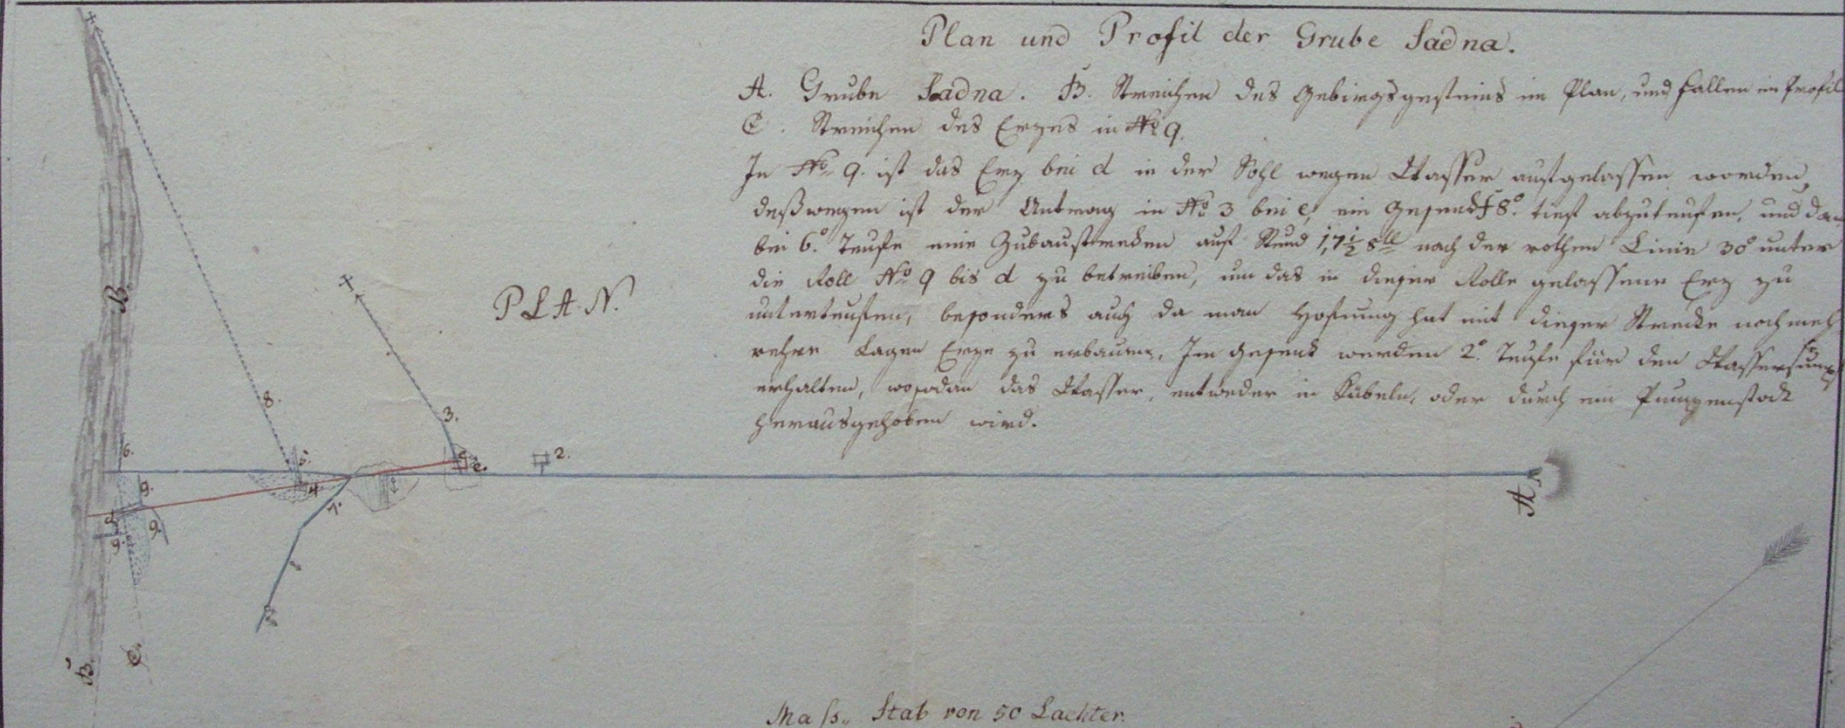 Plan und Profil der Grube Sadna.
A. Grube Sadna. B. Streichen des Gebirgsgesteins im Plan, und Fallen im Profil
C. Streichen des Erzes in No 9.
In No 9. ist das Erz bei d in der Sohl wegen Wasser ausgelassen worden,
deßwegen ist der Antrag in No 3 bei e, ein Gesenk 8° tief abzuteufen, und dan
bei 6° Teufe eine Zubaustrecken auf Stund 17 nach der rothen Linie 30° unter
die Roll No 9 bis d zu betreiben, um das in dieser Rolle gelassene Erz zu
unterteufen, besonders auch da man Hofnung hat mit dieser Strecke noch meh
rere Lagen Erze zu erbauen. Im Gesenk werden 2° Teufe für den Wassersumpf
erhalten, wosodan das Wasser, entweder in Kübeln, oder durch ein Pumpenstock
herausgehoben wird.
PLAN.
B.
8.
3.
6.
5.
e.
2.
9.
4.
7.
A
d
9.
9.
8
B.
C.
Mass Stab von 50 Lachter.